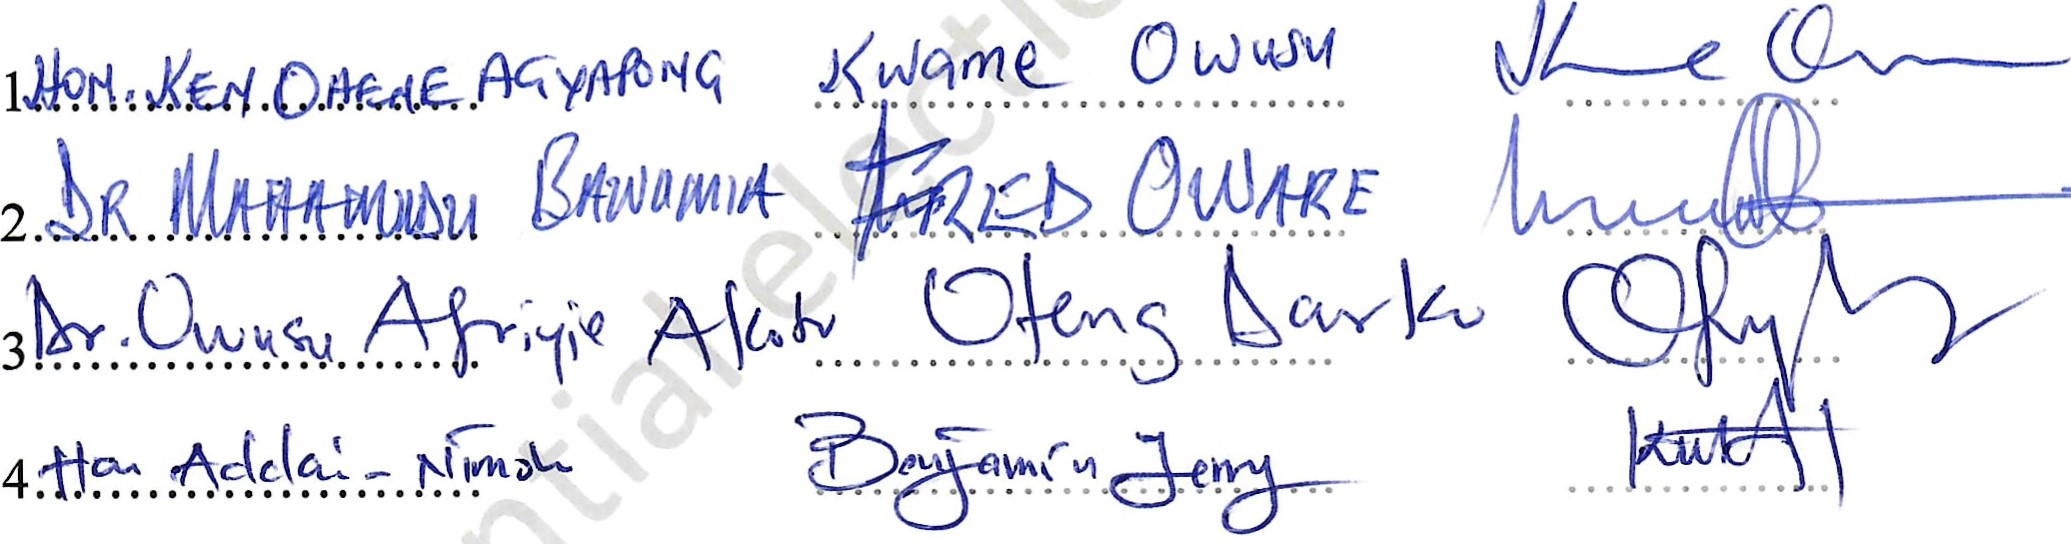 1. HON. KEN OHENE AGYAPONG Kwame Owusu
2. DR MAHAMUDU BAWUMIA FRED OWARE
3. Dr. Owusu Afriyie Akoto Oteng Darko
4. Hon Addai-Nimoh Benjamin Jerry
ntial electi